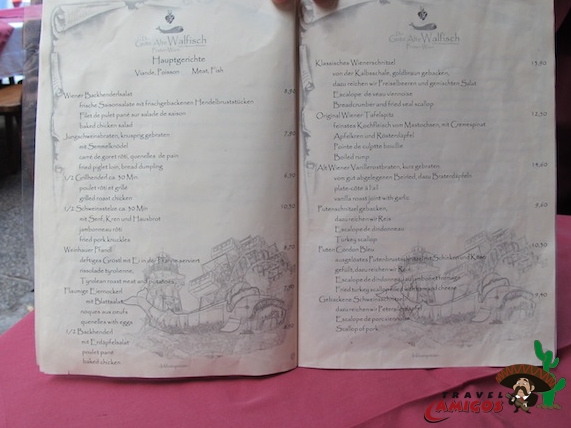 Gutes Altes
Walfisch
Hauptgerichte
Viande, Poisson Meat, Fish
Wiener Backhenderlsalat
frische Saisonsalate mit frischgebackenen Hendelbruststücken
Filet de polet pané sur salade de saison
baked chicken salad
Jungschweinsbraten, knusprig gebraten
mit Semmelknödel
carré de goret rôti, quenelles de pain
fried piglet loin, bread dumpling
1/2 Grillhenderl ca. 30 Min.
poulet rôti et grillé
grilled roast chicken
1/2 Schweinsstelze ca. 30 Min.
mit Senf, Kren und Hausbrot
jambonneau rôti
fried pork knuckles
Weinhauer Pfandl
deftiges Gröstl mit Ei in der Pfanne serviert
rissolade tyrolienne,
Tyrolean roast meat and potatoes
Flaumige Eiernockerl
mit Blattsalat
nioques aux oeufs
quennelles with eggs
1/2 Backhenderl
mit Erdäpfelsalat
poulet pané
baked chicken
Walfisch
Klassisches Wienerschnitzel 15,90
von der Kalbsschale, goldbraun gebacken,
dazu reichen wir Preiselbeeren und gemischten Salat
Escalope de veau viennoise
Breadcrumber and fried veal scallop
Original Wiener Tafelspitz 12,50
feinstes Kochfleisch vom Mastochsen, mit Cremespinat
Apfelkren und Rösterdäpfel
Pointe de culotte bouillie
Boiled rump
Alt Wiener Vanillerostbraten, kurz gebraten
vom gut abgelegenen Beiried, dazu Braterdäpfeln
plate-côte à l'ail
vanilla roast joint with garlic
Putenschnitzel gebacken,
dazu reichen wir Reis
Escalope de dindonneau
Turkey scallop
Puten Cordon Bleu 10,30
ausgelöstes Putenbrust mit Schinken und Käse
gefüllt, dazu reichen wir Reis
Escalope de dindonneau au jambon et fromage
Fried turkey ham and cheese
Gebackenes Schweinsschnitzel
dazu reichen wir Petersilerdäpfel
Escalope de porc
Scallop of pork
TRAVEL
AMIGOS